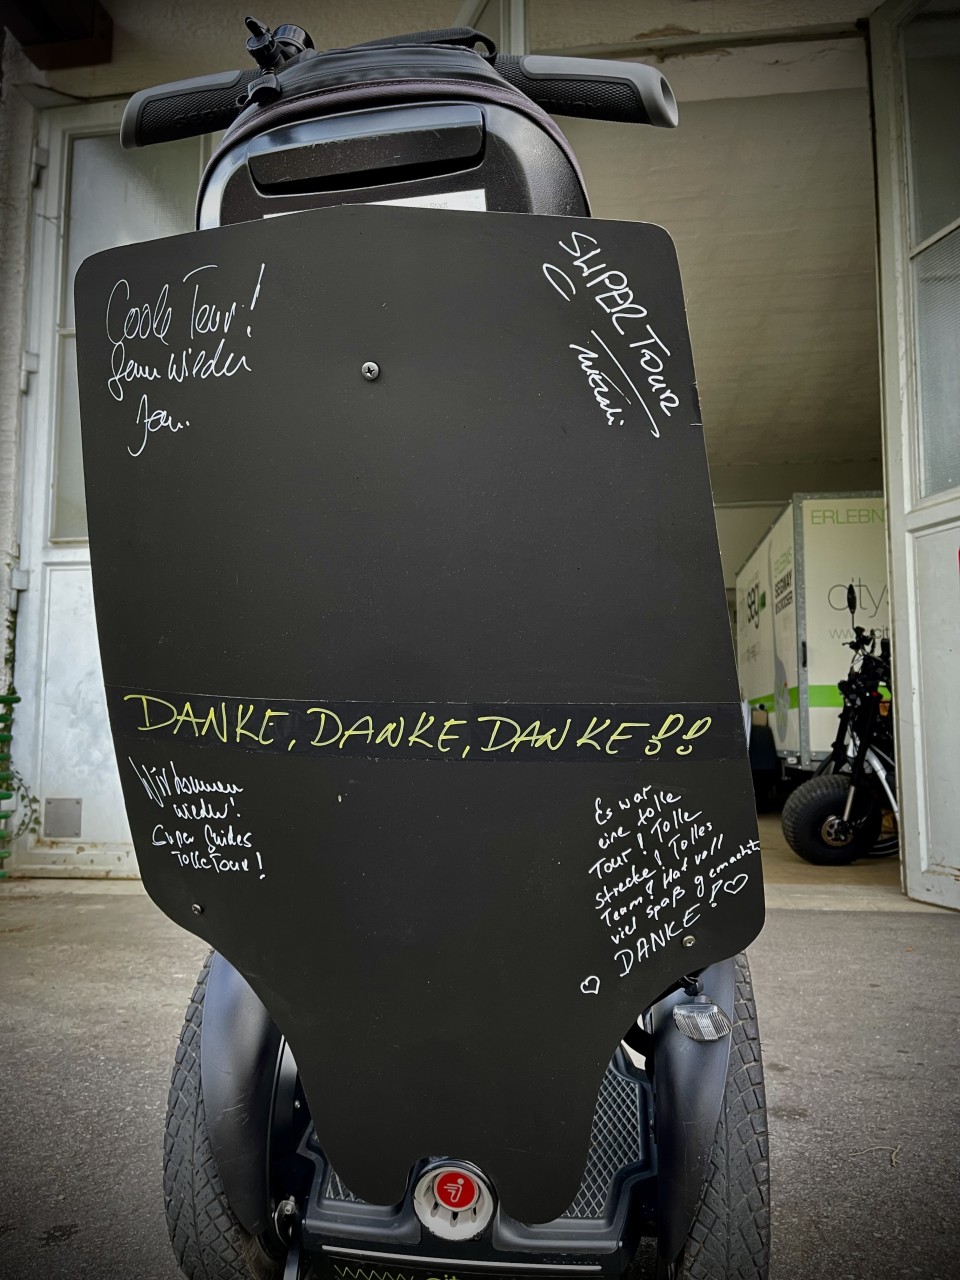 Coole Tour!
Gern wieder
Jan.
SUPER TOUR
DANKE, DANKE, DANKE!!
Wir kommen
wieder!
Super Guides
Tolle Tour!
Es war
eine tolle
Tour! Tolle
Strecke! Tolles
Team! Hat voll
viel spaß gemacht
DANKE!♡
♡
ERLEBN
city
seg
SEGWAY
www.cit